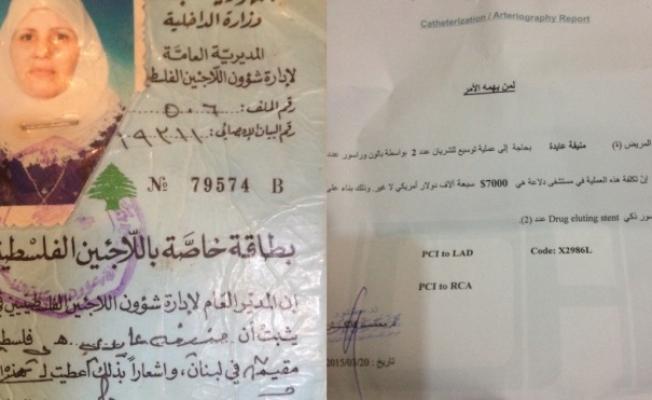 وزارة الداخلية
المديرية العامة
لإدارة شؤون اللاجئين
رقم الملف: ٥٠٦
رقم البيان الإحصائي:
№ 79574 B
بطاقة خاصة باللاجئين
إن المدير العام لإدارة شؤون اللاجئين الفلسطينيين
يثبت أن
مقيمة في لبنان، وإشعاراً بذلك أعطيت
Catheterization / Arteriography Report
لمن يهمه الأمر
المريض (ة) منيفة عايدة بحاجة إلى عملية توسيع للشريان عدد 2 بواسطة بالون وراسور عدد
إن تكلفة هذه العملية في مستشفى دلاعة هي $7000 سبعة آلاف دولار أمريكي لا غير وذلك بناء على
سور ذكي Drug eluting stent عدد (2).
PCI to LAD Code: X2986L
PCI to RCA
تاريخ: 2015/03/20